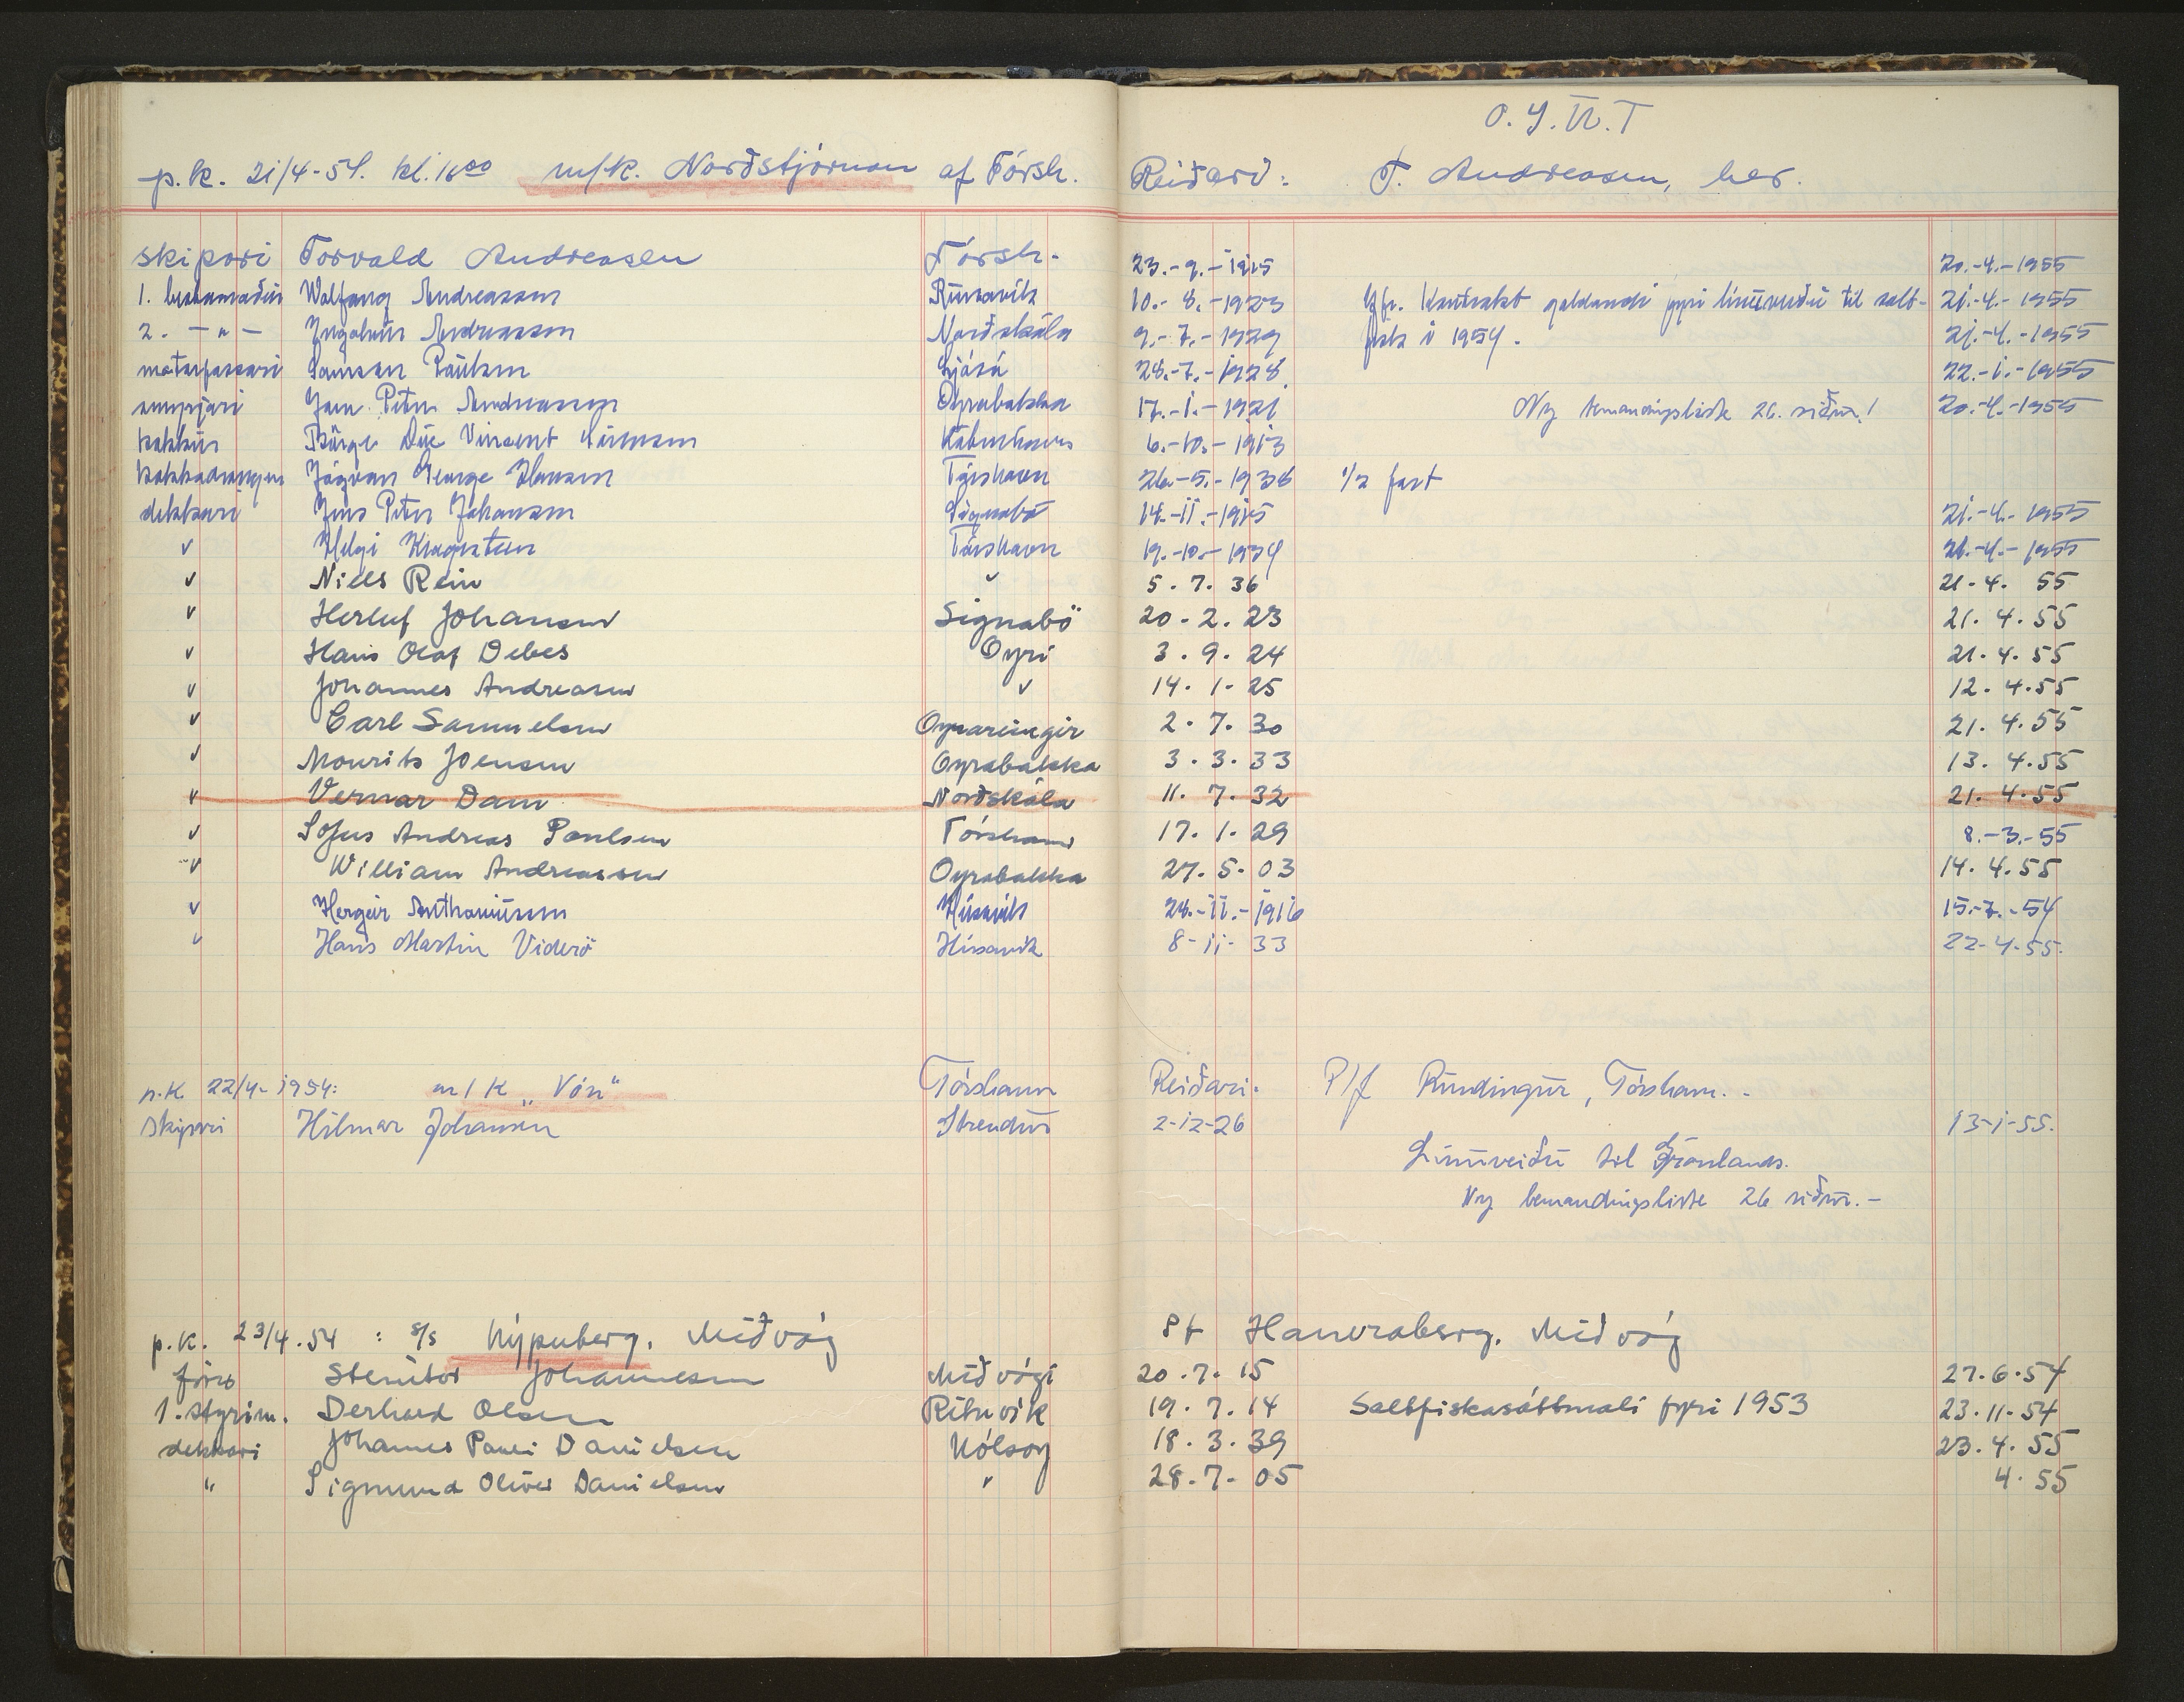 O. Y. W. T
p.k. 21/4-54. kl. 16⁰⁰ m/k. Norðstjørnan af Tórsh. Reiðari: T. Andreasen, her.
skipari Torvald Andreasen Tórsh. 23.-9.-1915 20.-4.-1955
1. bestimaður Wolfgang Andreassen Runavík 10.-8.-1923 Jfr. Kontrakt galdandi fyri línuveiðu til salt- 21.-4.-1955
2. -"- Ingolvur Andreassen Norðskála 9.-7.-1929 fisk í 1954. 21.-4.-1955
maturpassari Samson Poulsen Ljósá 28.-7.-1928. 22.-1.-1955
Jens Peter Andreassen Oyrabakka 17.-1.-1921 Ny bemandingsliste 26. síðu! 20.-4.-1955
kokkur Børge Vincent Keypmhavn 6.-10.-1913
kokkadrongur Jógvan George Hansen Tórshavn 26.-5.-1938 1/2 part
dekkari Jens Peter Johansen Signabø 14.-11.-1915 21.-4.-1955
v Helgi Tórshavn 19.-10.-1934 21.-4.-1955
v Niels Rein v 5. 7. 36 21.4. 55
v Herluf Johansen Signabö 20. 2. 23 21. 4. 55
v Hans Olaf Debes Oyri 3. 9. 24 21. 4. 55
v Johannes Andreasen v 14. 1. 25 12. 4. 55
v Carl Samuelsen Oynareingir 2. 7. 30 21. 4. 55
v Mourits Joensen Oyrabakka 3. 3. 33 13. 4. 55
v Vernar Dam Norðskála 11. 7. 32 21. 4. 55
v Sofus Andreas Poulsen Tórshavn 17. 1. 29 8.-3.-55
v William Andreassen Oyrabakka 27. 5. 03 14. 4. 55
v Hergeir Anthoniussen Húsavík 24.-11.-1916 15.-7.-54
v Hans Martin Viderö Húsavík 8-11-33 22-4-55.
p.k. 22/4-1954: m/k „Vón“ Tórshavn Reiðari: P/f Rundingur, Tórshavn.
Skipari Hilmar Johansen Strendur 2-12-26 13-1-55.
Línuveiðu til Grønlands.
Ny bemandingsliste 26 síðu.-
p.k. 23/4.54 : s/s Nýpuberg. Miðvág Pf Hamraberg. Miðvág
föri Steintór Johannesen Miðvági 20. 7. 15 27. 6. 54
1. stýrim. Derhard Olsen Rituvík 19. 7. 14 Saltfiskasáttmáli fyri 1953 23. 11. 54
dekkari Johannes Pauli Danielsen Nólsoy 18. 3. 39 23. 4. 55
" Sigmund Oliver Danielsen v 28. 7. 05 4. 55